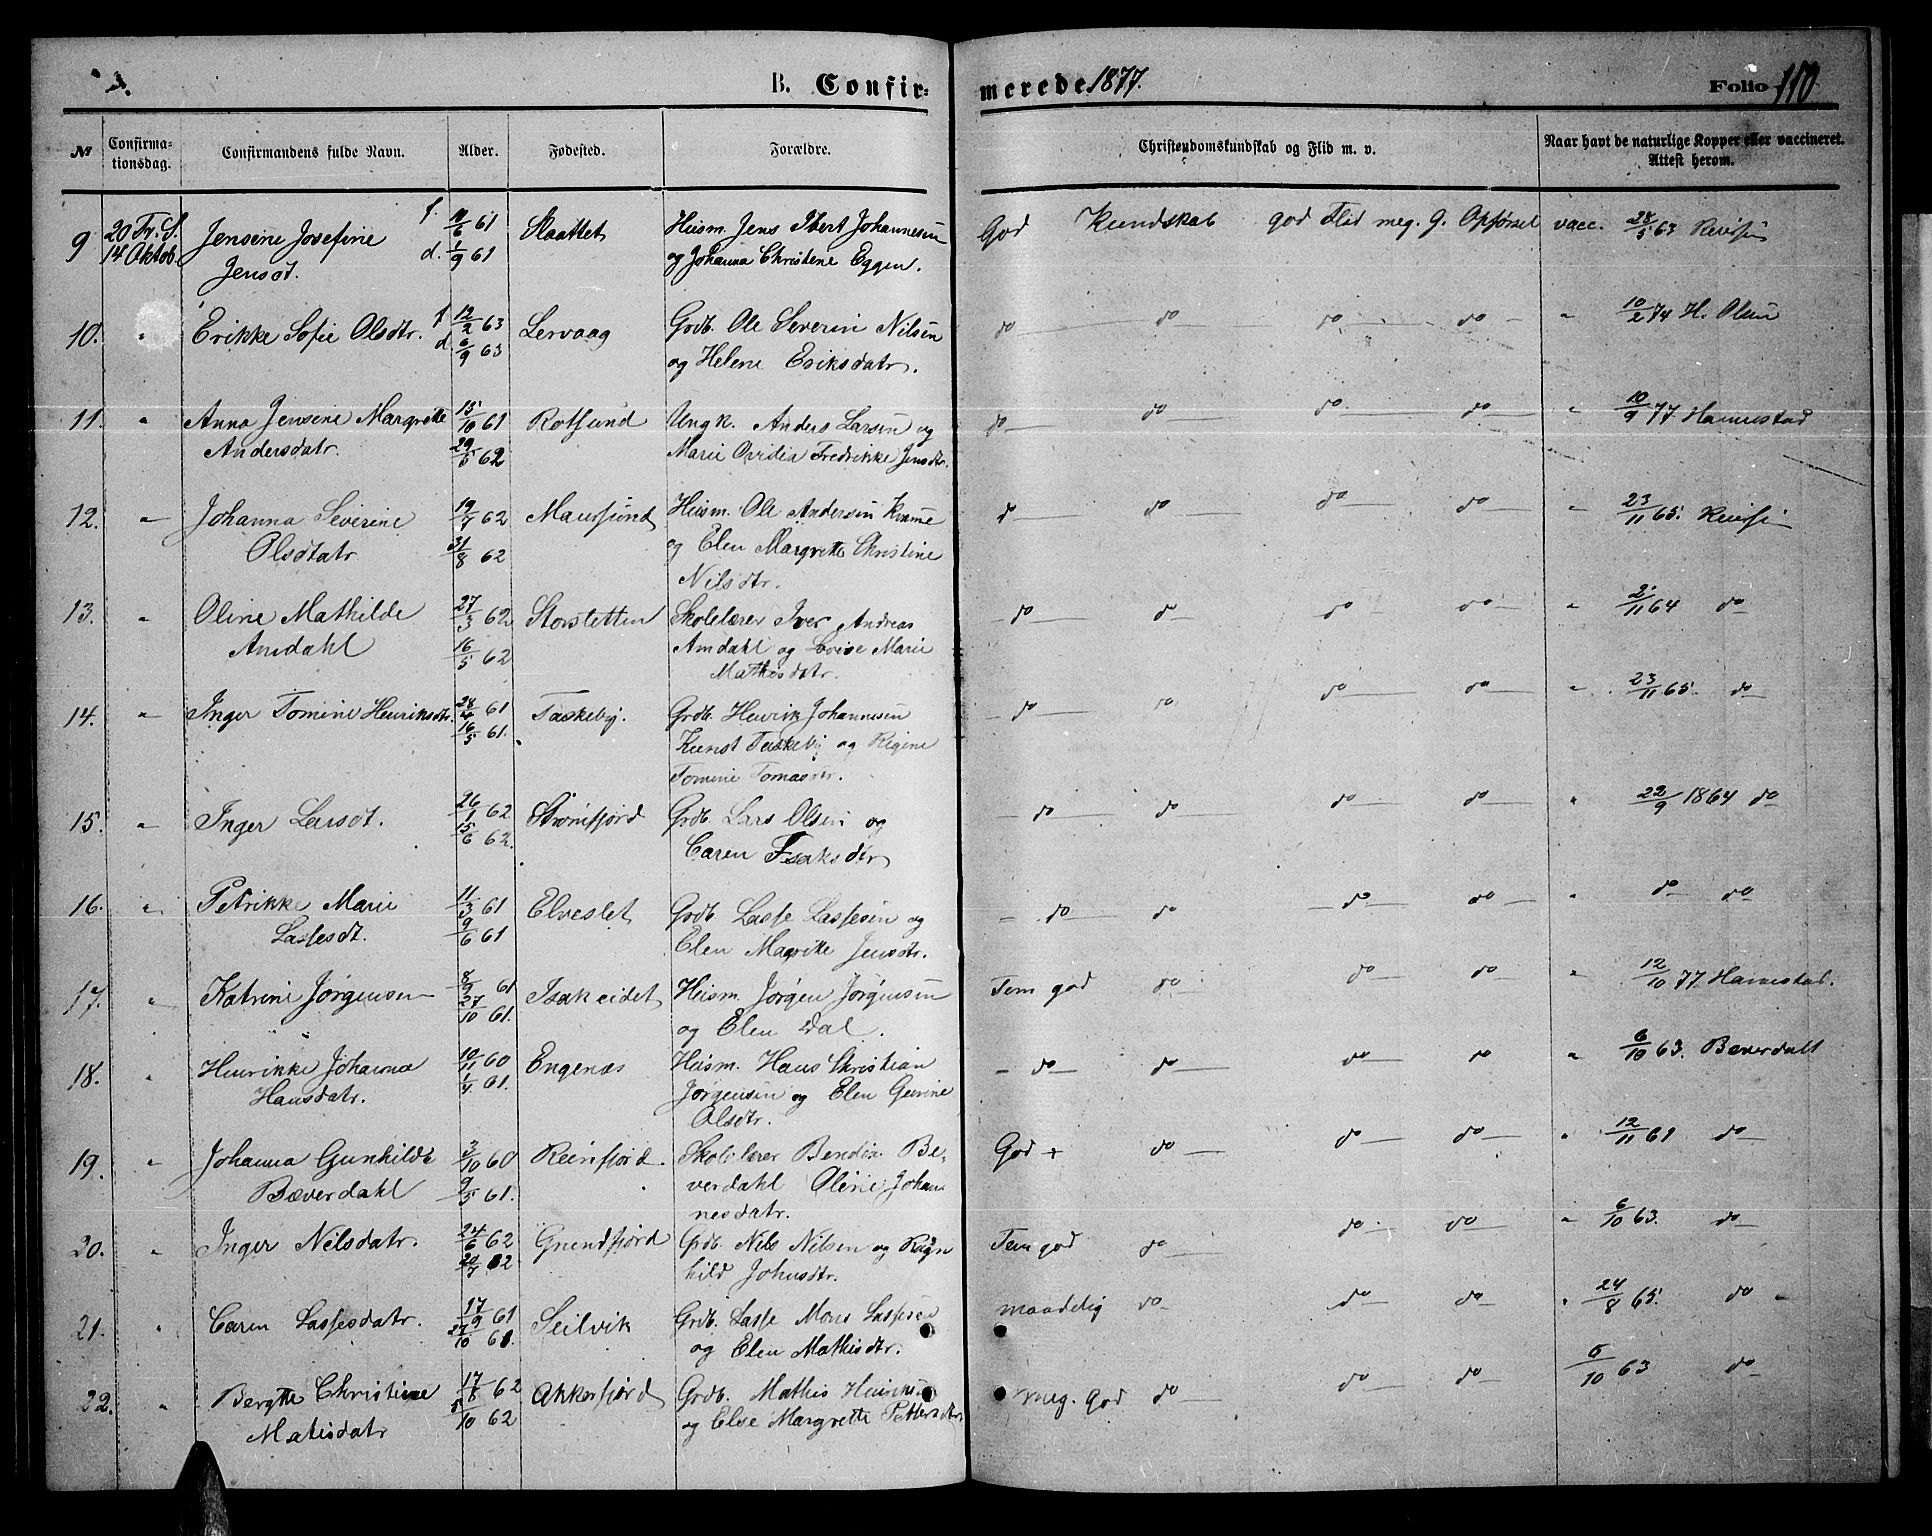 B. Confir-
merede 1877.
Folio 110
№
Confirma-
tionsdag.
Confirmandens fulde Navn.
Alder.
Fødested.
Forældre.
Christendomskundskab og Flid m. v.
Naar havt de naturlige Kopper eller vaccineret.
Attest herom.
9 20 Fr. S. Jensine Josefine f. 11/6 61 Slaattet Husm. Jens Ibert Johannesen God Kundskab god Flid meg. g. Opførsel vacc. 28/5 63
14 Oktob. Jensdt. d. 1/9 61 og Johanna Christene Eggen.
10. " Erikke Sofie Olsdtr. f 12/2 63 Lervaag Grdb. Ole Severin Nilsen do do do do " 10/2 74 H. Olsen
d 6/9 63 og Helene Eriksdatr.
11. " Anna Jensine Margrete 15/10 61 Rotsund Ungk. Anders Larsen og do do do do " 10/9 77 Hannestad
Andersdatr. 29/5 62 Marie Ovidia Fredrikke Jensdtr.
12. " Johanna Severine 19/7 62 Maursund Husm. Ole Andersen do do do 23/11 65.
Olsdtatr 31/8 62 og Elen Margrette Christine
Nilsdtr.
13. " Oline Mathilde 27/3 62 Storsletten Skolelærer Iver Andreas do do do do " 2/11 64 do
Amdahl 16/5 62 Amdahl og Lovise Marie
Mathisdatr.
14. " Inger Tomine Henriksdtr. 28/4 61 Taskeby. Grdb. Henrik Johannesen do do do do " 23/11 65. do
16/5 61. Kunst Taskeby og Regine
Tomine Tomasdtr.
15. " Inger Larsdt. 26/1 62 Strømfjord Grdb. Lars Olsen og do do do do " 22/9 1864 do
15/6 62. Caren Isaksdtr
16. " Petrikke Marie 11/3 61 Elveslet Grdb. Lasse Lassesen og do do do do " do do
Lassesdt. 9/6 61 Elen Jensdtr.
17. " Katrine Jørgensen 8/9 61 Isakeidet Husm. Jørgen Jørgensen Tem god do do do " 12/10 77. Hannestad.
27/10 61. og Elen Dal.
18. " Henrikke Johanna 10/11 60 Engenæs Husm. Hans Christian do do do do " 6/10 63. Beverdalt
Hansdatr. 1/4 61. Jørgensen og Elen
Olsdtr.
19. " Johanna Gunhilde 3/10 60 Reinfjord. Skolelærer Bendix Be- God + do do do " 12/11 61 do
Bæverdahl 9/5 61. verdahl Oline Johan-
nesdatr.
20. " Inger Nilsdatr. 24/6 62 Grundfjord Grdb. Nils Nilsen og Ragn Tem god do do do " 6/10 63. do
20/7 62 hild Johnsdtr.
21. " Caren Lassesdatr. 17/9 61 Seilvik Grdb. Lasse Mons Lassesen maadelig do do do " 24/8 65. do
27/10 61. og Elen Mathisdtr.
22. " Bergtte Christine 17/8 62 Akkerfjord Grdb. Mathis meg. God do do do 6/10 63 do
Matisdatr 5/10 62 og Else Margrette Pettersdtr.